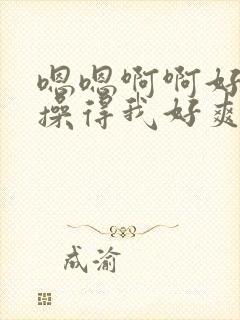 嗯嗯啊啊好
操得我好爽
成渝